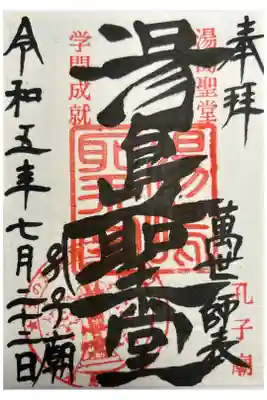 奉拝
湯島聖堂
萬世師表
孔子廟
湯島聖堂
孔子廟
学問成就
令和五年七月二十二日